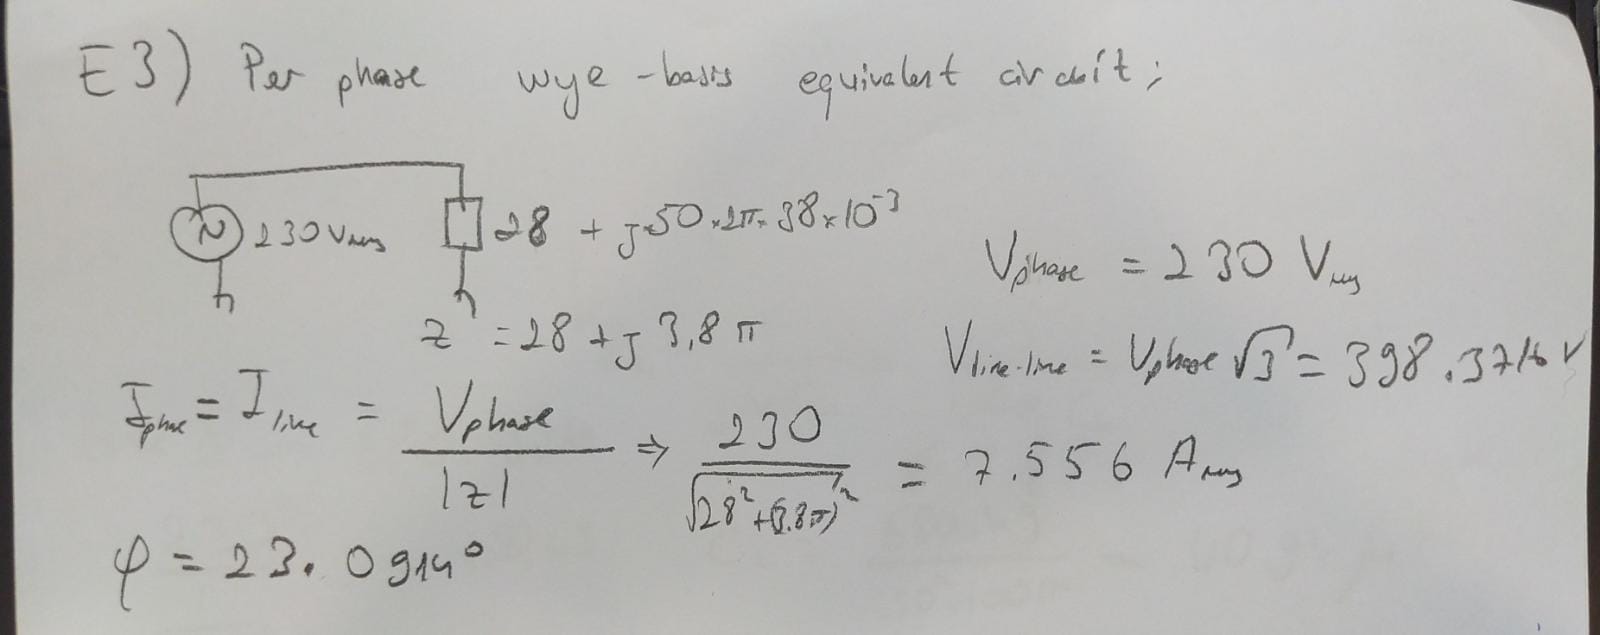 E3) Per phase wye-basis equivalent circuit;
230 Vrms 28 + j·50·2π·38×10⁻³
Vphase = 230 Vrms
z = 28 + j 3,8 π
Vline-line = Vphase √3 = 398.3716 V
Iphase = Iline = Vphase / |z| ⇒ 230 / √(28² + (3.8π)²) = 7.556 Arms
φ = 23.0914°